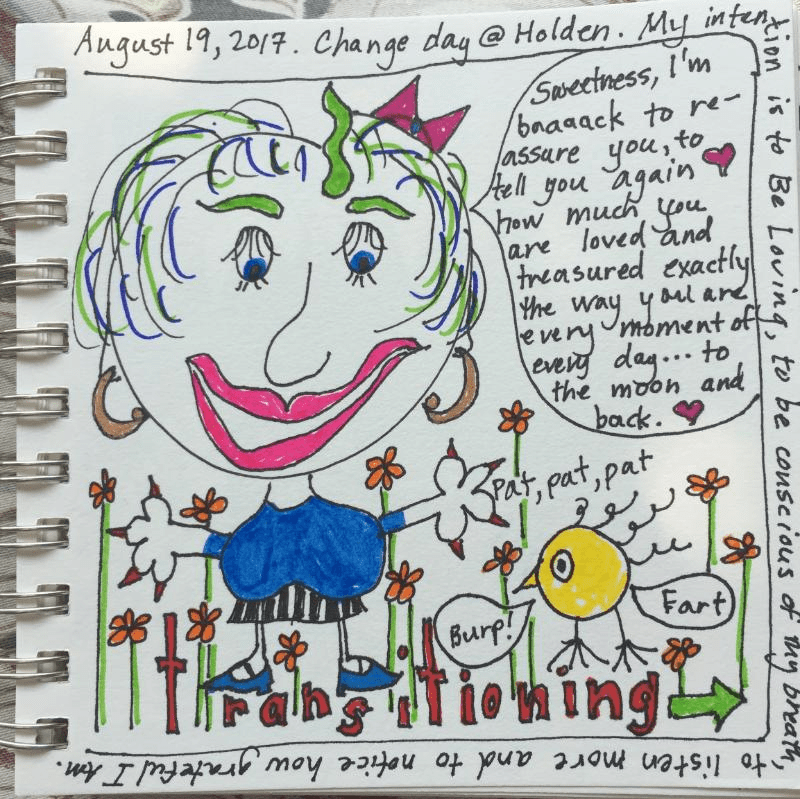 August 19, 2017. Change day @ Holden. My intention is to Be Loving, to be conscious of my breath, to listen more and to notice how grateful I Am.
Sweetness, I'm
baaaack to re-
assure you, to
tell you again
how much you
are loved and
treasured exactly
the way you are
every moment of
every day... to
the moon and
back.
Pat, pat, pat
Burp!
Fart
transitioning